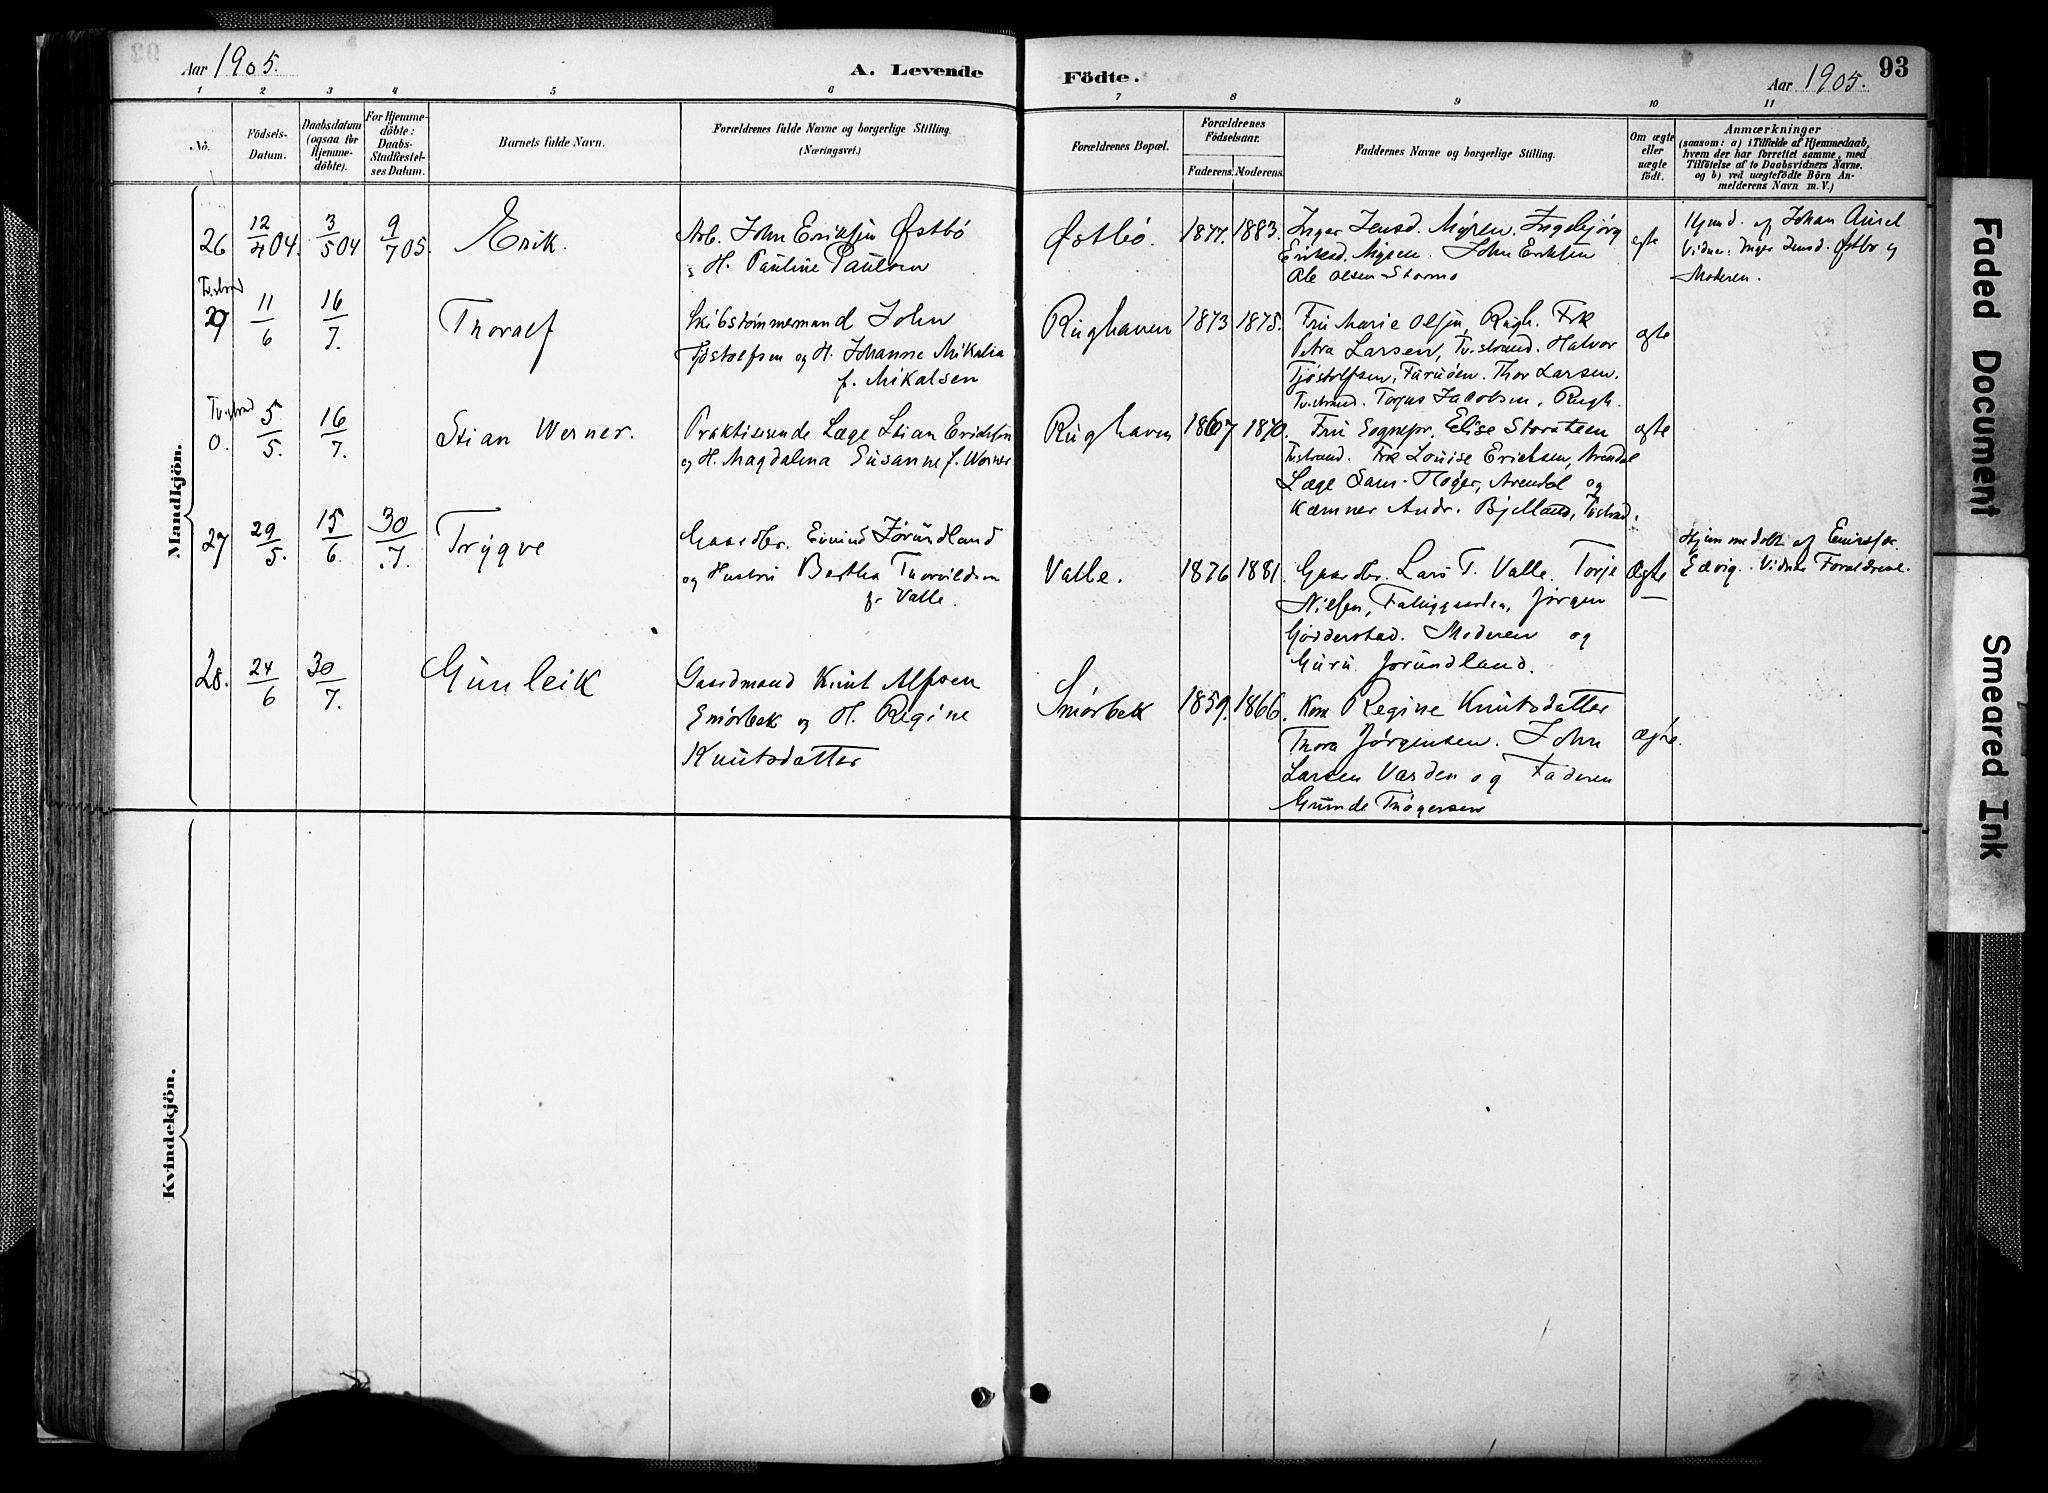 Aar 1905.
A. Levende
Födte.
Aar 1905.
93
1 2 3 4 5 6 7 8 9 10 11
No.
Födsels-
Datum.
Daabsdatum
(ogsaa for
Hjemme-
döbte).
For Hjemme-
döbte:
Daabs-
Stadfæstel-
ses Datum.
Barnets fulde Navn.
Forældrenes fulde Navne og borgerlige Stilling.
(Næringsvei.)
Forældrenes Bopæl.
Forældrenes
Födselsaar.
Faderens. Moderens.
Faddernes Navne og borgerlige Stilling.
Om ægte
eller
uægte
födt.
Anmærkninger
(saasom: a) i Tilfælde af Hjemmedaab,
hvem der har forrettet samme, med
Tilföielse af to Daabsvidners Navne.
og b) ved uægtefödte Börn An-
melderens Navn m. V.)
Mandkjön.
26 12/4 04. 3/5 04 9/7 05. Erik.
Arb. John Eriksen Østbö
H. Pauline Paulsen
Østbö. 1877. 1883.
Inger Jensd. Myren. Ingebjörg
Eriksd. Myren. John Eriksen
Ole Olsen Stormo
egte
Hjmd. af Johan
Vidner. Inger Jensd. Østbö og
Moderen.
Tv.strand
11/6 16/7. Thoralf
Skibstømmermand John
Tjöstolfsen og H. Johanne Mikalia
f. Mikalsen
Rughaven 1873 1875.
Fru Marie Olsen, Rugh. Frk
Petra Larsen, Tv.strand. Halvor
Tjöstolfsen, Furuöen. Thor Larsen.
Tv.strand. Torjus Jacobsen, Rugh.
egte
Tv.strand
0. 5/5. 16/7. Stian Werner.
Praktiserende Læge Stian Erichsen
og H. Magdalena Susanne f. Werner
Rughaven 1867 1870.
Fru Sognepr. Elise Storsteen
Tvstrand. Frk Louise Erichsen, Arendal
Læge Sam. Höyer, Arendal og
Kæmner Andr. Bjelland, Tvstrand.
ægte
27 29/5. 15/6. 30/7. Trygve
Gaardbr. Eivind Jørundland
og Hustru Bertha Thorvildsen
fr Valle.
Valle. 1876 1881.
Gaardbr. Lars T. Valle. Torje
Nilsen, Jørgen
Gjødderstad. Moderen og
Guru Jorundland.
Ægte
Hjemmedöbt af
Vidner Forældrene.
28. 24/6 30/7. Gunleik
Gaardmand Knut Alfsen
Smörbek og H. Regine
Knutsdatter
Smörbek 1859. 1866.
Kone Regine Knutsdatter
Thora Jørgensen. John
Larsen Varden og Faderen
Gunde Thögersen
ægte.
Kvindekjön.
Faded Document
Smeared Ink